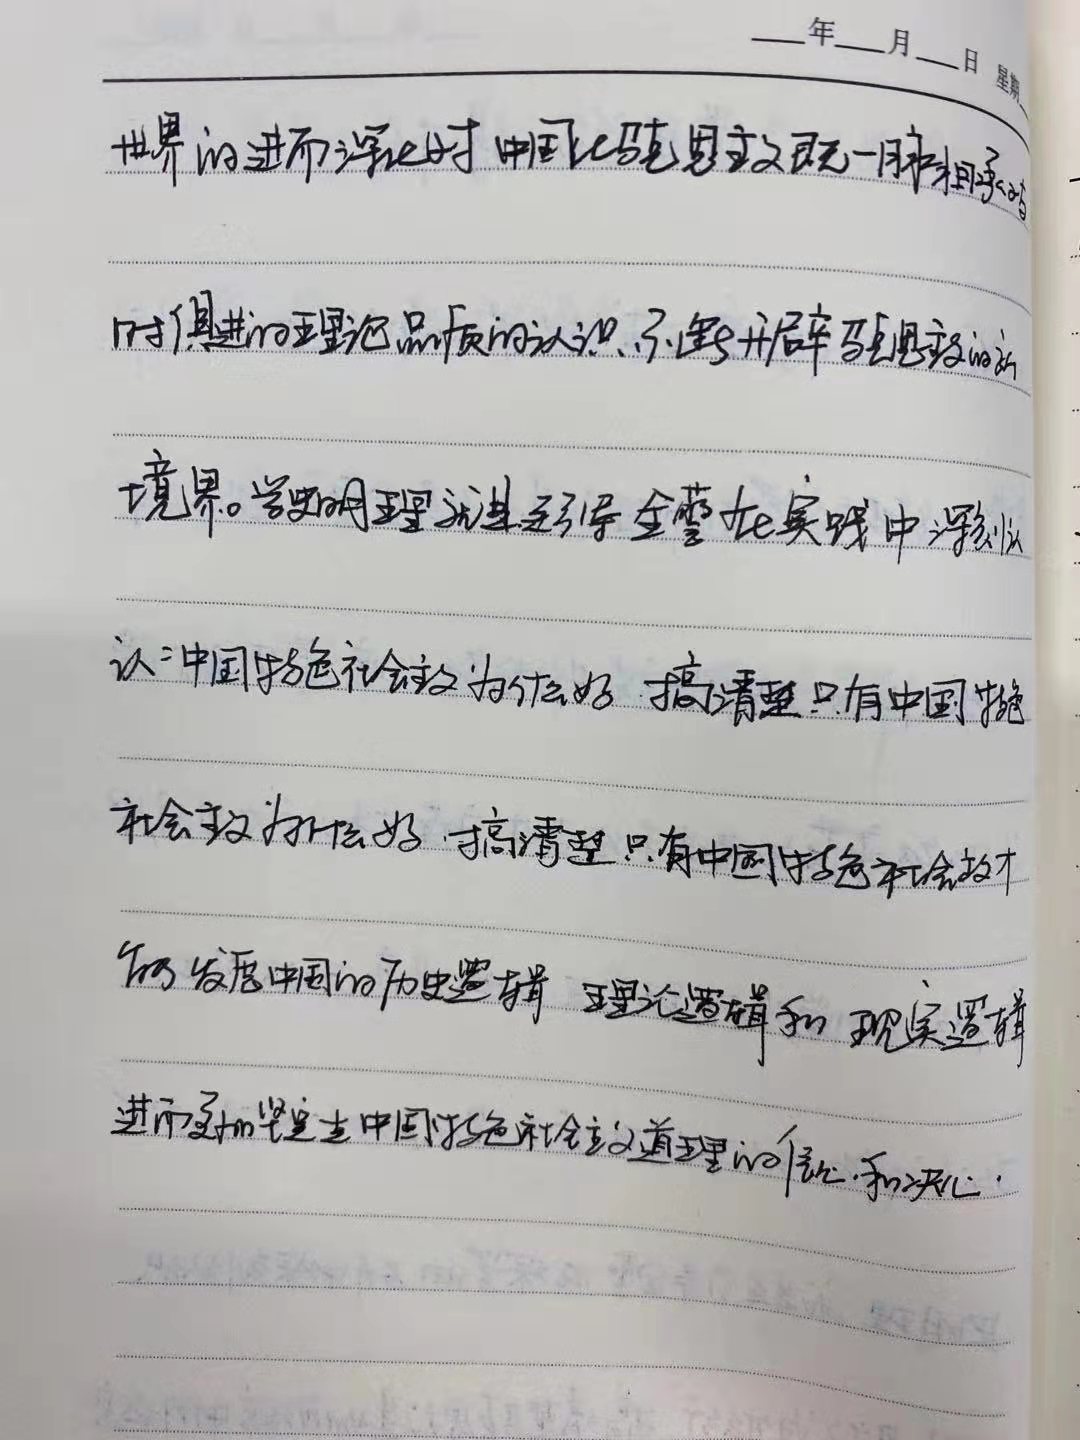 年 月 日 星期
世界的 进而深化对 中国化马克思主义既一脉相承又与
时俱进的理论品质的认识、不断开辟马克思主义的新
境界。学史明理就是引导全警在实践中深刻认
认:中国特色社会主义为什么好 搞清楚只有中国特色
社会主义为什么好 搞清楚只有中国特色社会主义才
能发展中国的历史逻辑 理论逻辑和 现实逻辑
进而更加坚定走中国特色社会主义道理的信心.和决心.